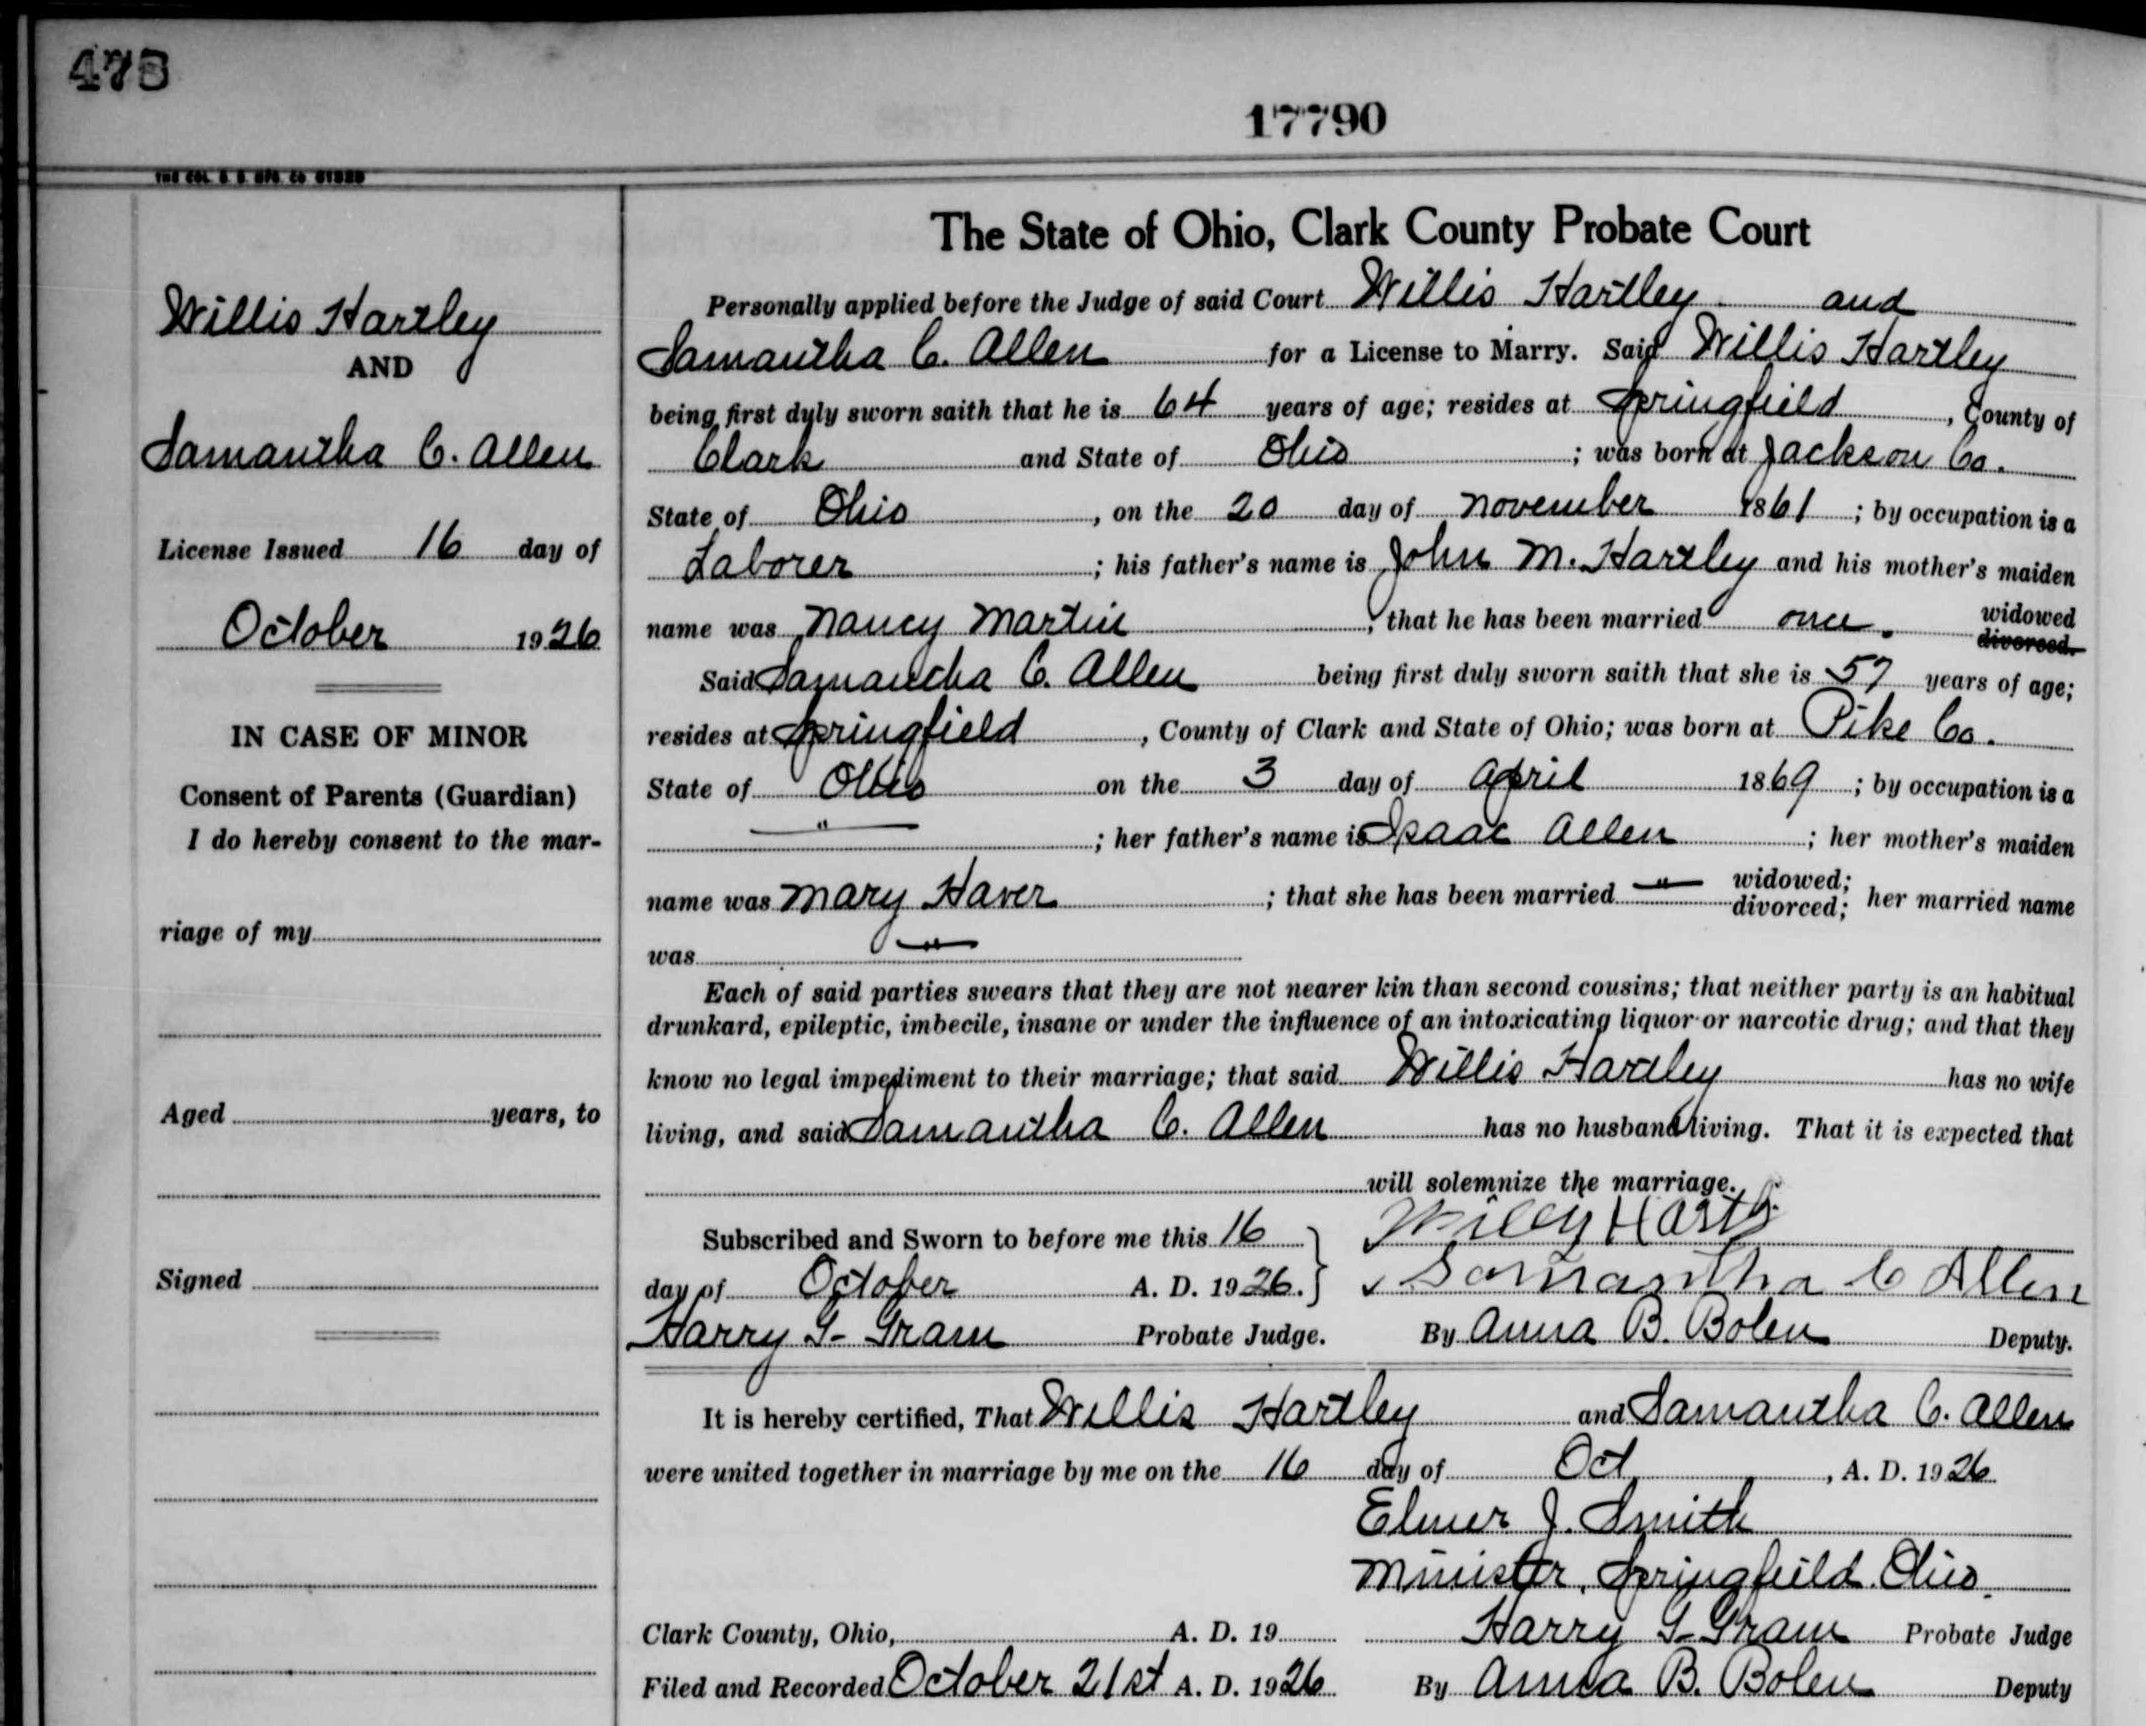 478
17790
THE COL. B. B. MFG. CO. 61939
Willis Hartley
AND
Samantha C. Allen
License Issued 16 day of
October 1926
IN CASE OF MINOR
Consent of Parents (Guardian)
I do hereby consent to the mar-
riage of my
Aged years, to
Signed
The State of Ohio, Clark County Probate Court
Personally applied before the Judge of said Court Willis Hartley and
Samantha C. Allen for a License to Marry. Said Willis Hartley
being first duly sworn saith that he is 64 years of age; resides at Springfield, County of
Clark and State of Ohio; was born at Jackson Co.
State of Ohio, on the 20 day of November 1861; by occupation is a
Laborer; his father's name is John M. Hartley and his mother's maiden
name was Nancy Martin, that he has been married once. widowed
divorced.
Said Samantha C. Allen being first duly sworn saith that she is 57 years of age;
resides at Springfield, County of Clark and State of Ohio; was born at Pike Co.
State of Ohio on the 3 day of April 1869; by occupation is a
—"—; her father's name is Isaac Allen; her mother's maiden
name was Mary Haver; that she has been married —"— widowed; divorced; her married name
was —"—
Each of said parties swears that they are not nearer kin than second cousins; that neither party is an habitual
drunkard, epileptic, imbecile, insane or under the influence of an intoxicating liquor or narcotic drug; and that they
know no legal impediment to their marriage; that said Willis Hartley has no wife
living, and said Samantha C. Allen has no husband living. That it is expected that
will solemnize the marriage.
Subscribed and Sworn to before me this 16 Wiley Hartly
day of October A. D. 1926. Samantha C Allen
Harry G. Gram Probate Judge. By Anna B. Bolen Deputy.
It is hereby certified, That Willis Hartley and Samantha C. Allen
were united together in marriage by me on the 16 day of Oct, A. D. 1926
Elmer J. Smith
Minister, Springfield. Ohio.
Clark County, Ohio, A. D. 19 Harry G. Gram Probate Judge
Filed and Recorded October 21st A. D. 1926 By Anna B. Bolen Deputy